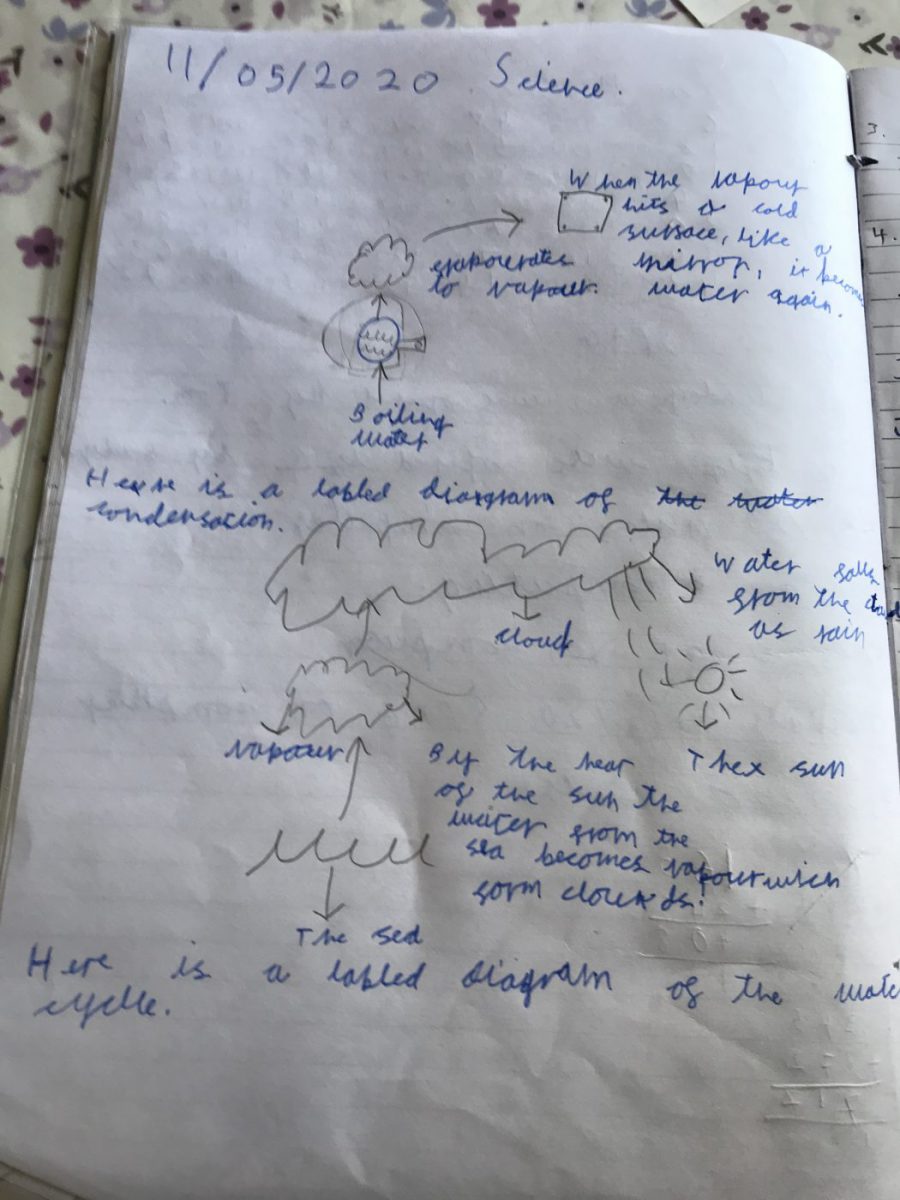 11/05/2020 Science.
When the vapour
hits a cold
surface, like a
mirror, it becomes
water again.
evapourates
to vapour.
Boiling
water
Here is a labled diagram of the water
condensation.
Water falls
from the clouds
as rain
cloud
vapour
The sun
By the hear
of the sun the
water from the
sea becomes vapour which
form clouds!
The sea
Here is a labled diagram of the wate
cycle.
3.
4.